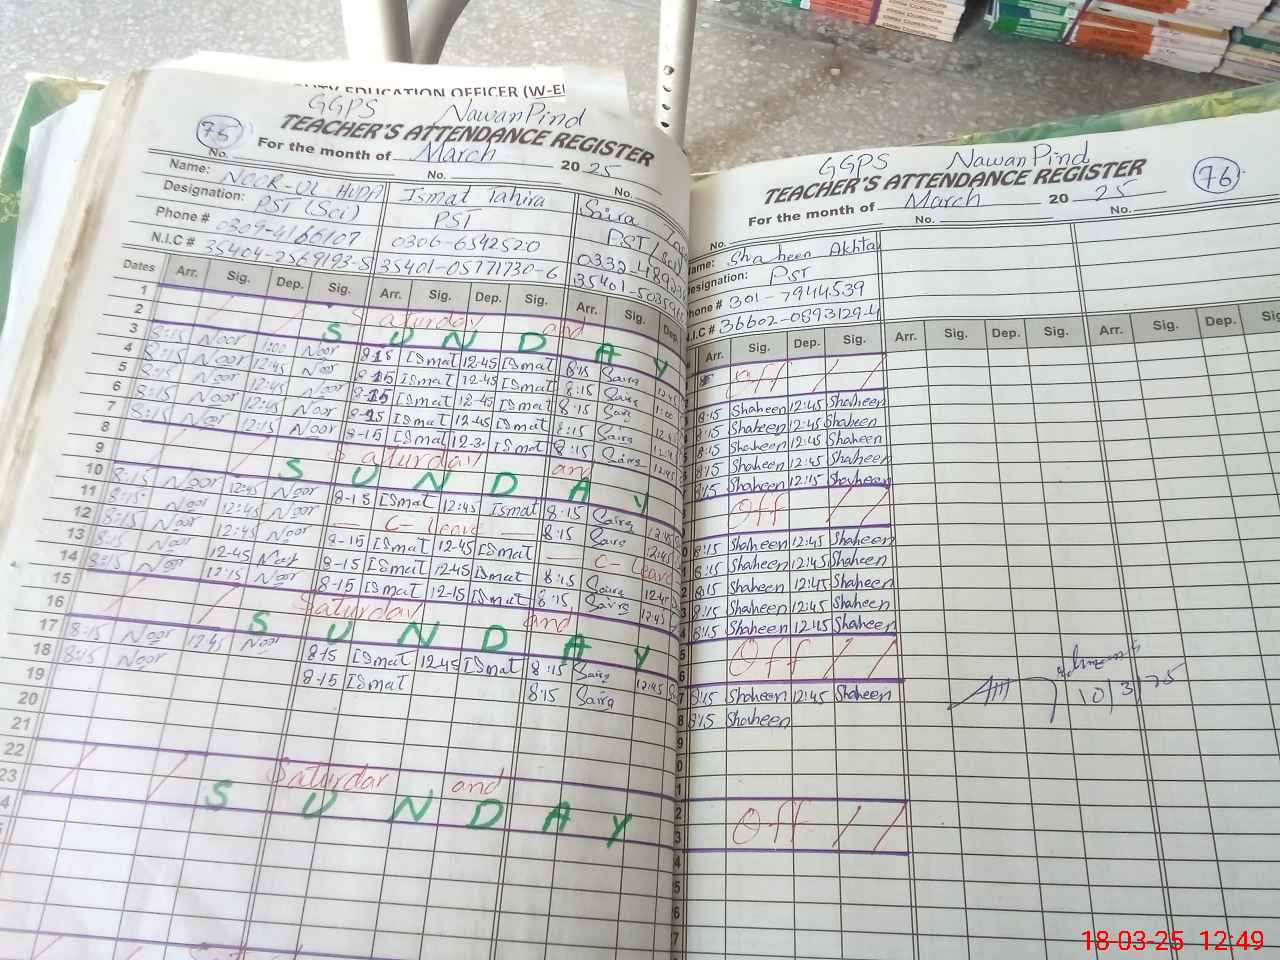 EDUCATION OFFICER (W-E
GGPS Nawan Pind
TEACHER'S ATTENDANCE REGISTER
75
For the month of March 20 25
No. No. No.
Name: NOOR-UL-HUDA Ismat Tahira Saira
Designation: PST (Sci) PST PST (Sci)
Phone # 0309-4166107 0306-6542520
N.I.C # 35404-2569193-5 35401-0577730-6
Dates Arr. Sig. Dep. Sig. Arr. Sig. Dep. Sig. Arr. Sig. Dep.
1 Saturday and
2 S U N D A Y
3 8:15 Noor 1:00 Noor 8-15 Ismat 12-45 Ismat 8:15 Saira
4 8:15 Noor 12:45 Noor 8-15 Ismat 12-45 Ismat 8:15 Saira
5 8:15 Noor 12:45 Noor 8-15 Ismat 12-45 Ismat 8:15 Saira
6 8:15 Noor 12:45 Noor 8-15 Ismat 12-45 Ismat 8:15 Saira
7 8:15 Noor 12:15 Noor 8-15 Ismat Ismat 8:15 Saira
8 Saturday and
9 S U N D A Y
10 8:15 Noor 12:45 Noor 8-15 Ismat 12:45 Ismat 8:15 Saira 12:45
11 8:15 Noor 12:45 Noor C-Leave 8:15 Saira 12:45
12 8:15 Noor 12:45 Noor 8-15 Ismat 12-45 Ismat C-Leave
13 8:15 Noor 12-45 Noor 8-15 Ismat 12:45 Ismat 8:15 Saira 12:45
14 8:15 Noor 12:15 Noor 8-15 Ismat 12-15 Ismat 8:15 Saira
15 Saturday and
16 S U N D A Y
17 8:15 Noor 12:45 Noor 8-15 Ismat 12-45 Ismat 8:15 Saira 12:45
18 8:15 Noor 8-15 Ismat 8:15 Saira
19
20
21
22 Saturday and
23 S U N D A Y
GGPS Nawan Pind
TEACHER'S ATTENDANCE REGISTER
76
For the month of March 20 25
No. No. No.
Name: Shaheen Akhta
Designation: PST
Phone # 301-7944539
N.I.C # 36602-0893129-4
Arr. Sig. Dep. Sig. Arr. Sig. Dep. Sig. Arr. Sig. Dep. Sig.
Off
8:15 Shaheen 12:45 Shaheen
8:15 Shaheen 12:45 Shaheen
8:15 Shaheen 12:45 Shaheen
8:15 Shaheen 12:45 Shaheen
8:15 Shaheen 12:15 Shaheen
Off
8:15 Shaheen 12:45 Shaheen
8:15 Shaheen 12:45 Shaheen
8:15 Shaheen 12:45 Shaheen
8:15 Shaheen 12:45 Shaheen
8:15 Shaheen 12:45 Shaheen
Off
8:15 Shaheen 12:45 Shaheen
8:15 Shaheen
10/3/25
Off
18-03-25 12:49